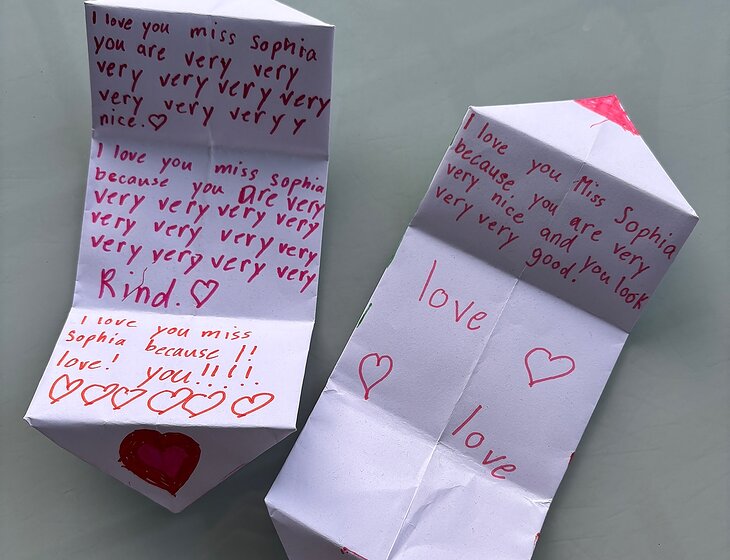 I love you miss Sophia
you are very very
very very very very
very very veryy
nice.♡
I love you miss sophia
because you are very
very very very very
very very very very
very very very very
Kind.♡
I love you miss
Sophia because I!
love! you!!!!!
♡♡♡♡♡♡
I love you Miss Sophia
because you are very
very nice and you look
very very good.
love
♡ ♡
love